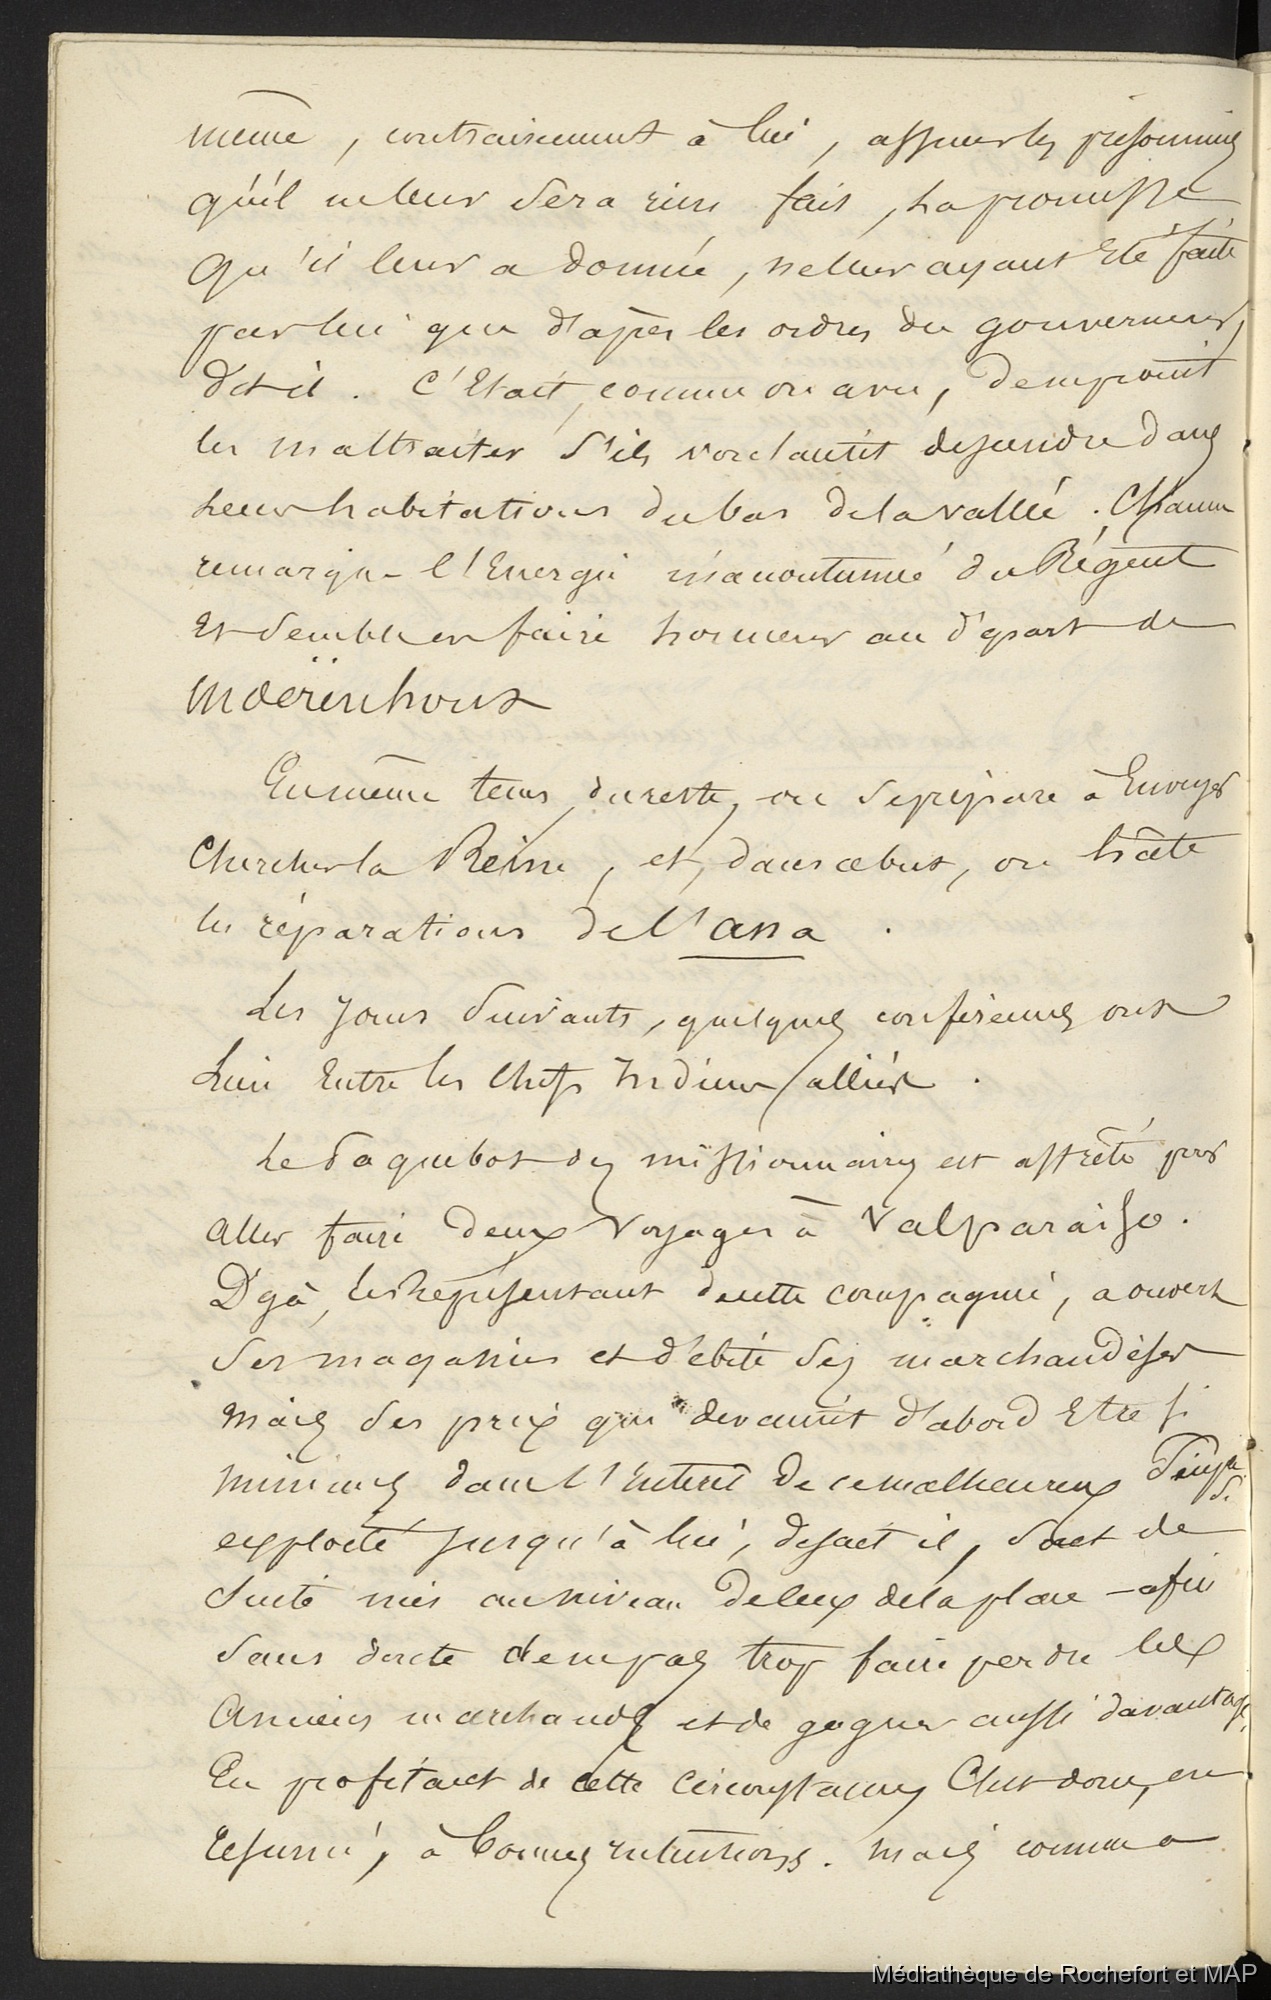 même, contrairement à lui, assure les prisonniers
qu'il ne leur sera rien fait, la promesse
qu'il leur a donnée, ne leur ayant été faite
par lui que d'après les ordres du gouverneur,
dit il. C'était, comme on a vu, de
les maltraiter s'ils voulaient descendre dans
leurs habitations du bas de la vallé. Chacun
remarque l'énergie inacoutumée du Régent
et semble en faire honneur au départ de
Mœrenhout
En même tems, du reste, on se prépare à envoyer
chercher la Reine, et, dans ce but, on hâte
les réparations de l'ana.
Les jours suivants, quelques conférences ont
lieu entre les chefs indiens alliés.
Le paquebot des missionnaires est affrété pour
aller faire deux voyages à Valparaiso.
Déjà, le représentant de cette compagnie, a ouvert
ses magasins et débité ses marchandises
mais ses prix qui devaient d'abord être si
minimes dans l'intérêt de ce malheureux peuple si
exploité jusqu'à lui, disait il, sont de
suite mis au niveau de ceux de la place - afin
sans doute de ne pas trop faire perdre les
anciens marchands et de gagner aussi davantage,
en profitant de cette circonstance. C'est donc, en
résumé, à bonnes intentions. Mais comme
Médiathèque de Rochefort et MAP